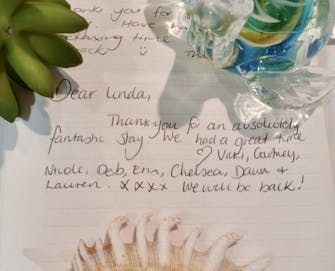 thank you for
Have
time
back
Dear Linda,
Thank you for an absolutely
fantastic stay. We had a great time
♡ Vicki, Courtney,
Nicole, Deb, Erin, Chelsea, Dawn &
Lauren. xxxx We will be back!